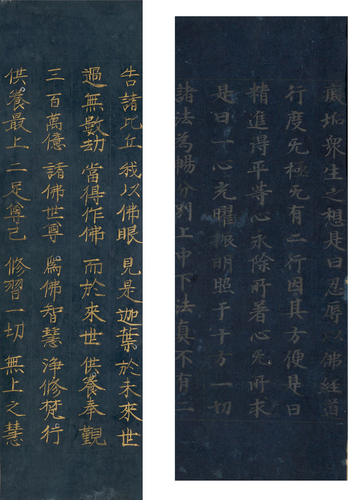 告諸比丘 我以佛眼 見是迦葉 於未來世
過無數劫 當得作佛 而於來世 供養奉覲
三百萬億 諸佛世尊 為佛智慧 淨修梵行
供養最上 二足尊已 修習一切 無上之慧
垢眾生之想是曰忍辱以佛經道
行度无極无有二行因其方便是曰
精進得平等心永除所著心无所求
是曰一心光曜振明照于十方一切
諸法為暢分別上中下法真不有二